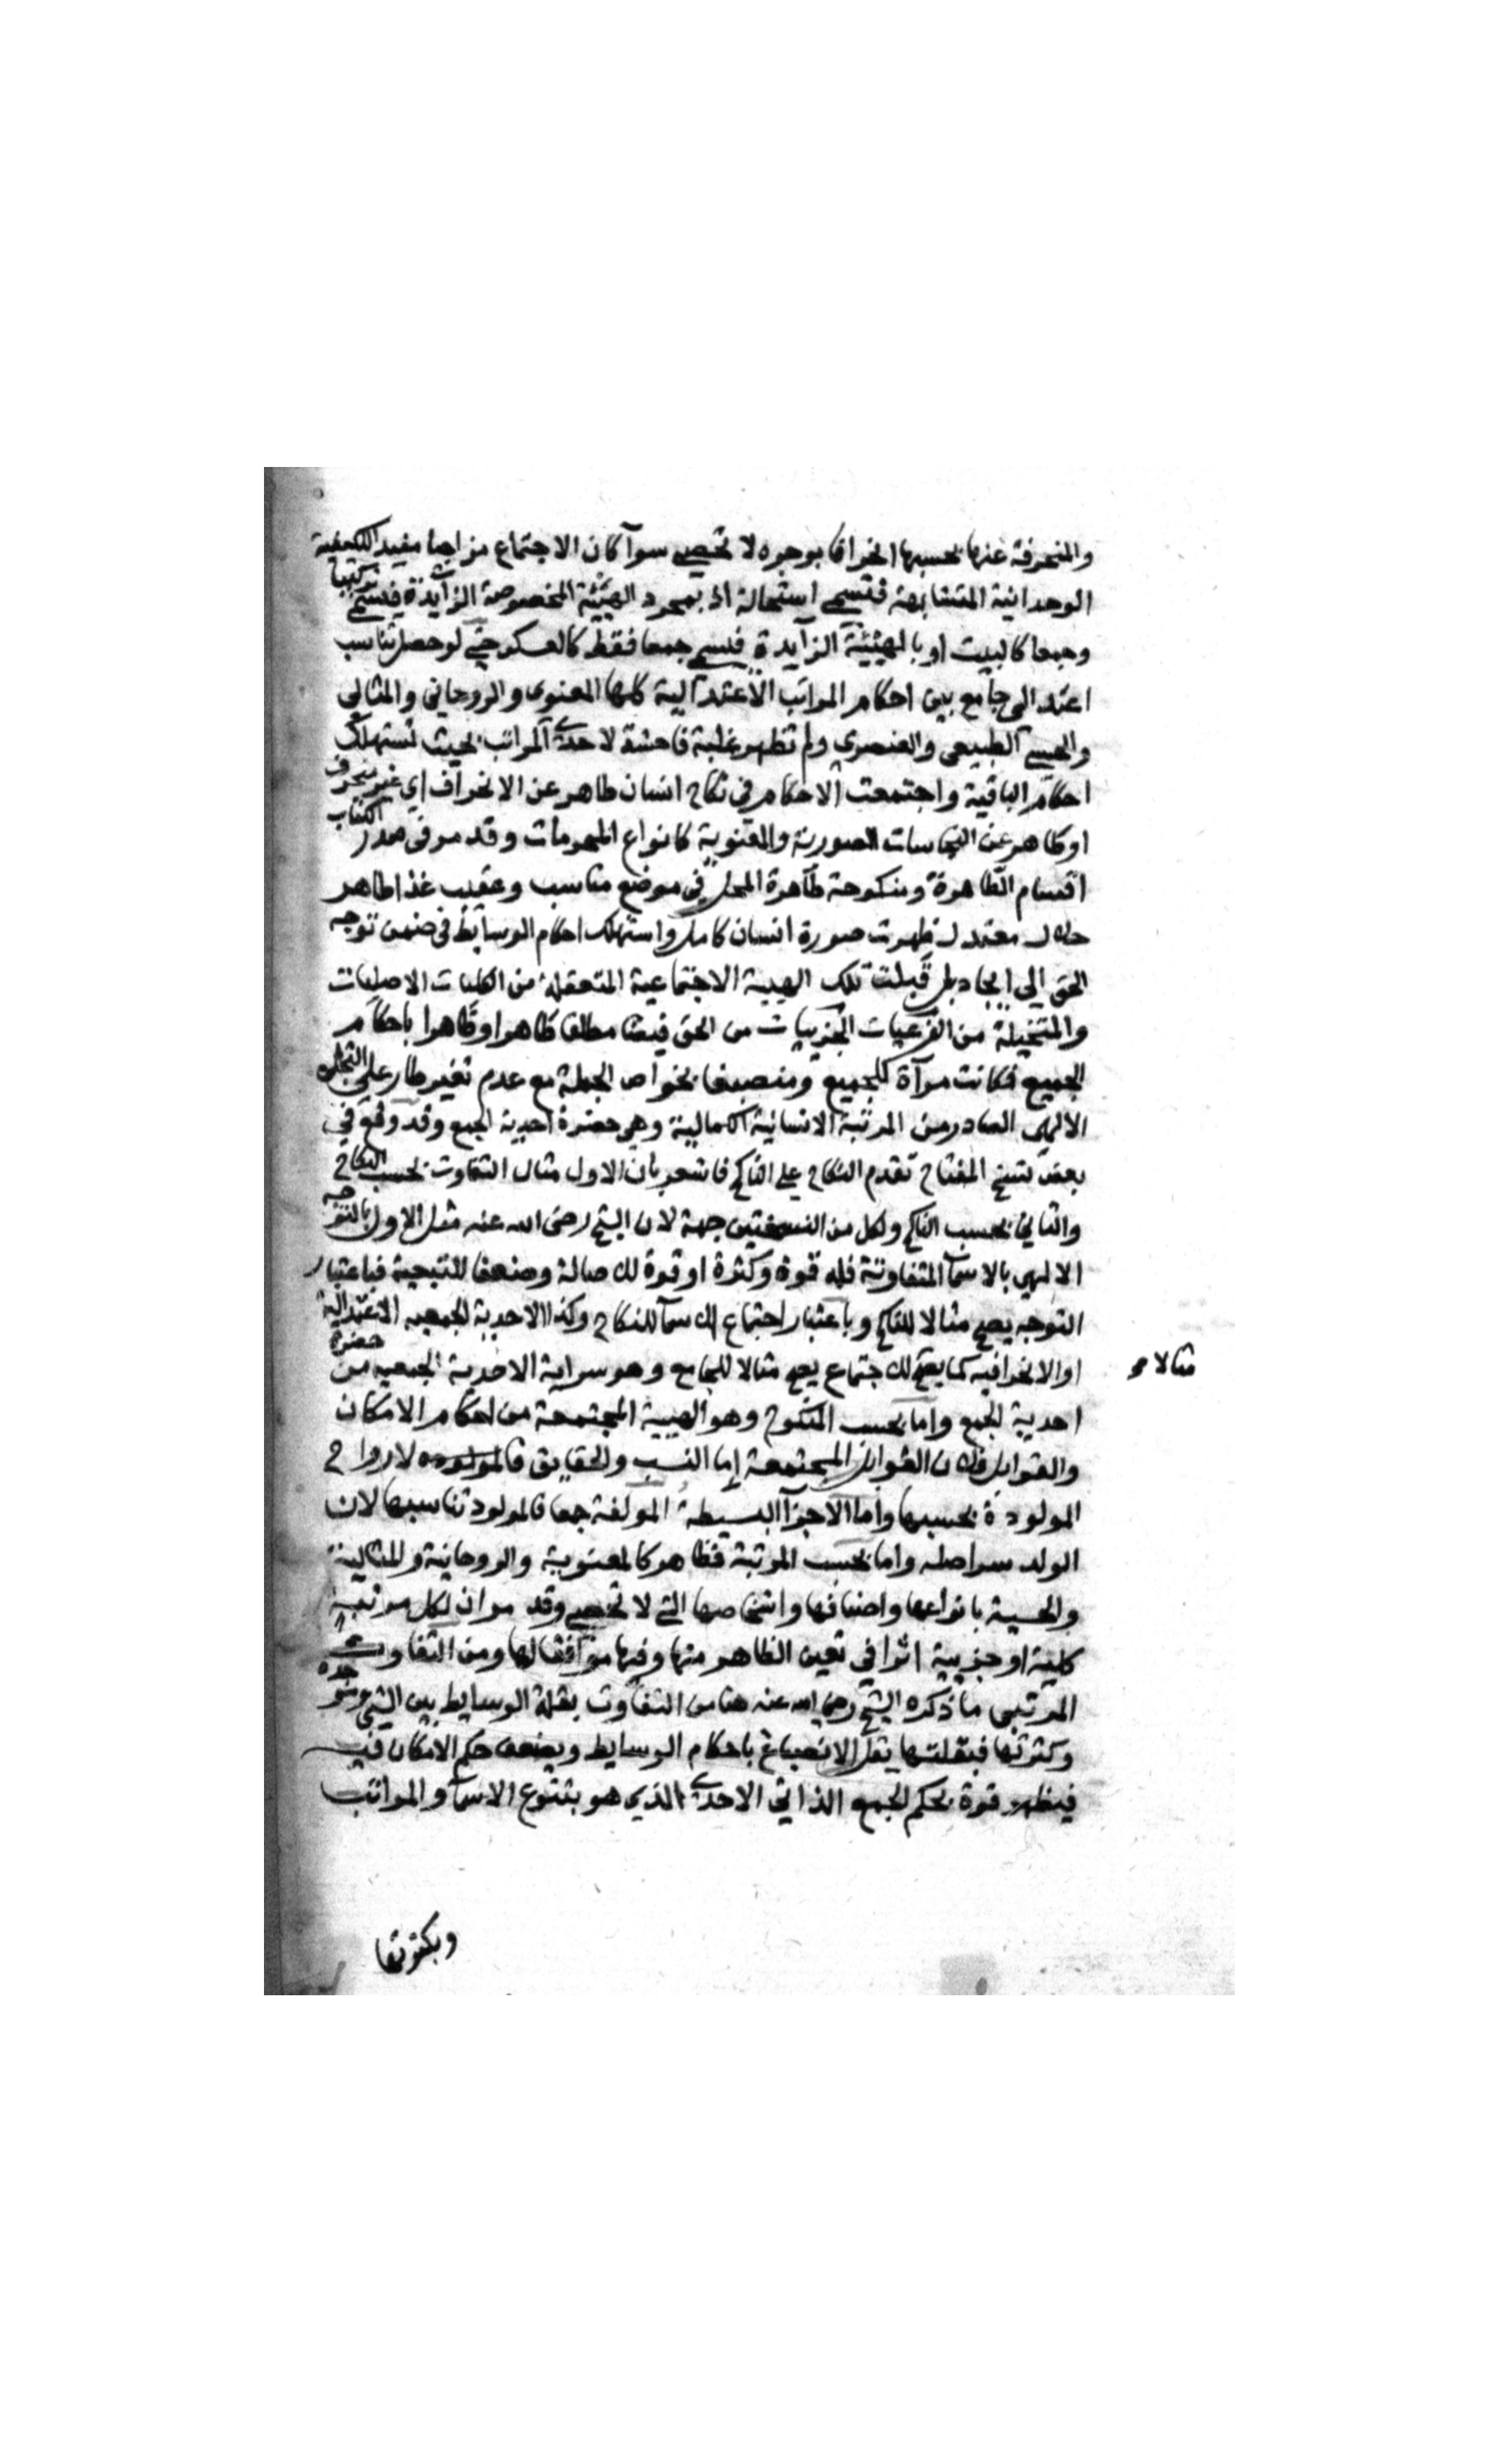 والمنحرفة عنها بحسبها انحرافا بوجوه لا تحصى سوآ كان الاجتماع مزاجيا مفيد الكيفية
الوحدانية المتشابهة فتسمى استحالة او بمجرد الهيئة المخصوصة الزآيدة فيسمى تركيبا
وجمعا كالبيت او بالهيئية الزآيدة فيسمى جمعا فقط كالعسكر حتى لو حصل تناسب
اعتدالى جامع بين احكام المراتب الاعتدالية كلها المعنوى والروحانى والمثالى
والحسى الطبيعى والعنصرى ولم تظهر غلبة فاحشة لاحدى المراتب بحيث تستهلك
احكام الباقية واجتمعت الاحكام فى نكاح انسان طاهر عن الانحراف اى غير منحرف
او طاهر عن النجاسات الصورية والمعنوية كانواع المحرمات وقد مر فى صدر الكتاب
اقسام الطاهرة ومنكوحة طاهرة المحل فى موضع مناسب وعقيب غذا طاهر
حلال معتدل ظهرت صورة انسان كامل واستهلك احكام الوسايط فى ضمن توجه
الحق الى ايجاده بل قبلت تلك الهيية الاجتماعية المتعقلة من الكليات الاصليات
والمتخيلة من الفرعيات الجزييات من الحق فيضا مطلقا ظاهرا وظاهرا باحكام
الجميع فكانت مرآة للجميع ومنصبغا بخواص الجملة مع عدم تغير طار على التجلى
الالهى الصادر من المرتبة الانسانية الكمالية وهى حضرة احدية الجمع وقد وقع فى
بعض نسخ المفتاح تقدم النكاح على الناكح فاشعر بان الاول مثال التفاوت بحسب النكاح
والثانى بحسب الناكح ولكل من النسختين جهة لان الشيخ رضى الله عنه مثل الاول بالتوجه
الالهى بالاسمآ المتفاوتة فله قوة وكثرة او قوة لك صالة وضعفا للنتيجية فباعتبار
التوجه يصح مثالا للناكح وباعتبار اجتماع الاسمآ للنكاح وكذا الاحدية الجمعيه الاعتدالية
او الانحرافيه كما يصح لك جتماع يصح مثالا للجامع وهو سراية الاحدية الجمعيه من حضرة
مثالا مو
احدية الجمع واما بحسب المنكوح وهو الهيية المجتمعة من احكام الامكان
والقوابل فلان القوابل المجتمعة اما النسب والحقايق فالمولوده لارواح
المولودة بحسبها واما الاجزآ البسيطة المولفة جمعا فالمولود تناسبها لان
الولد سر اصله واما بحسب المرتبة فظاهر كالمعنوية والروحانية والمثالية
والحسية بانواعها واصنافها واشخاصها التى لا تحصى وقد مر ان لكل مرتبة
كلية او جزيية اثرا فى تعين الظاهر منها وفيها موافقا لها ومن التفاوت
المرتبى ما ذكره الشيخ رضى الله عنه هنا من التفاوت بقلة الوسايط بين الشى وموجده
وكثرتها فبقلتها يقل الانصباغ باحكام الوسايط ويضعف حكم الامكان فيه
فيظهر قوة بحكم الجمع الذاتى الاحدى الذى هو بتنوع الاسمآ والمراتب
وبكثرتها